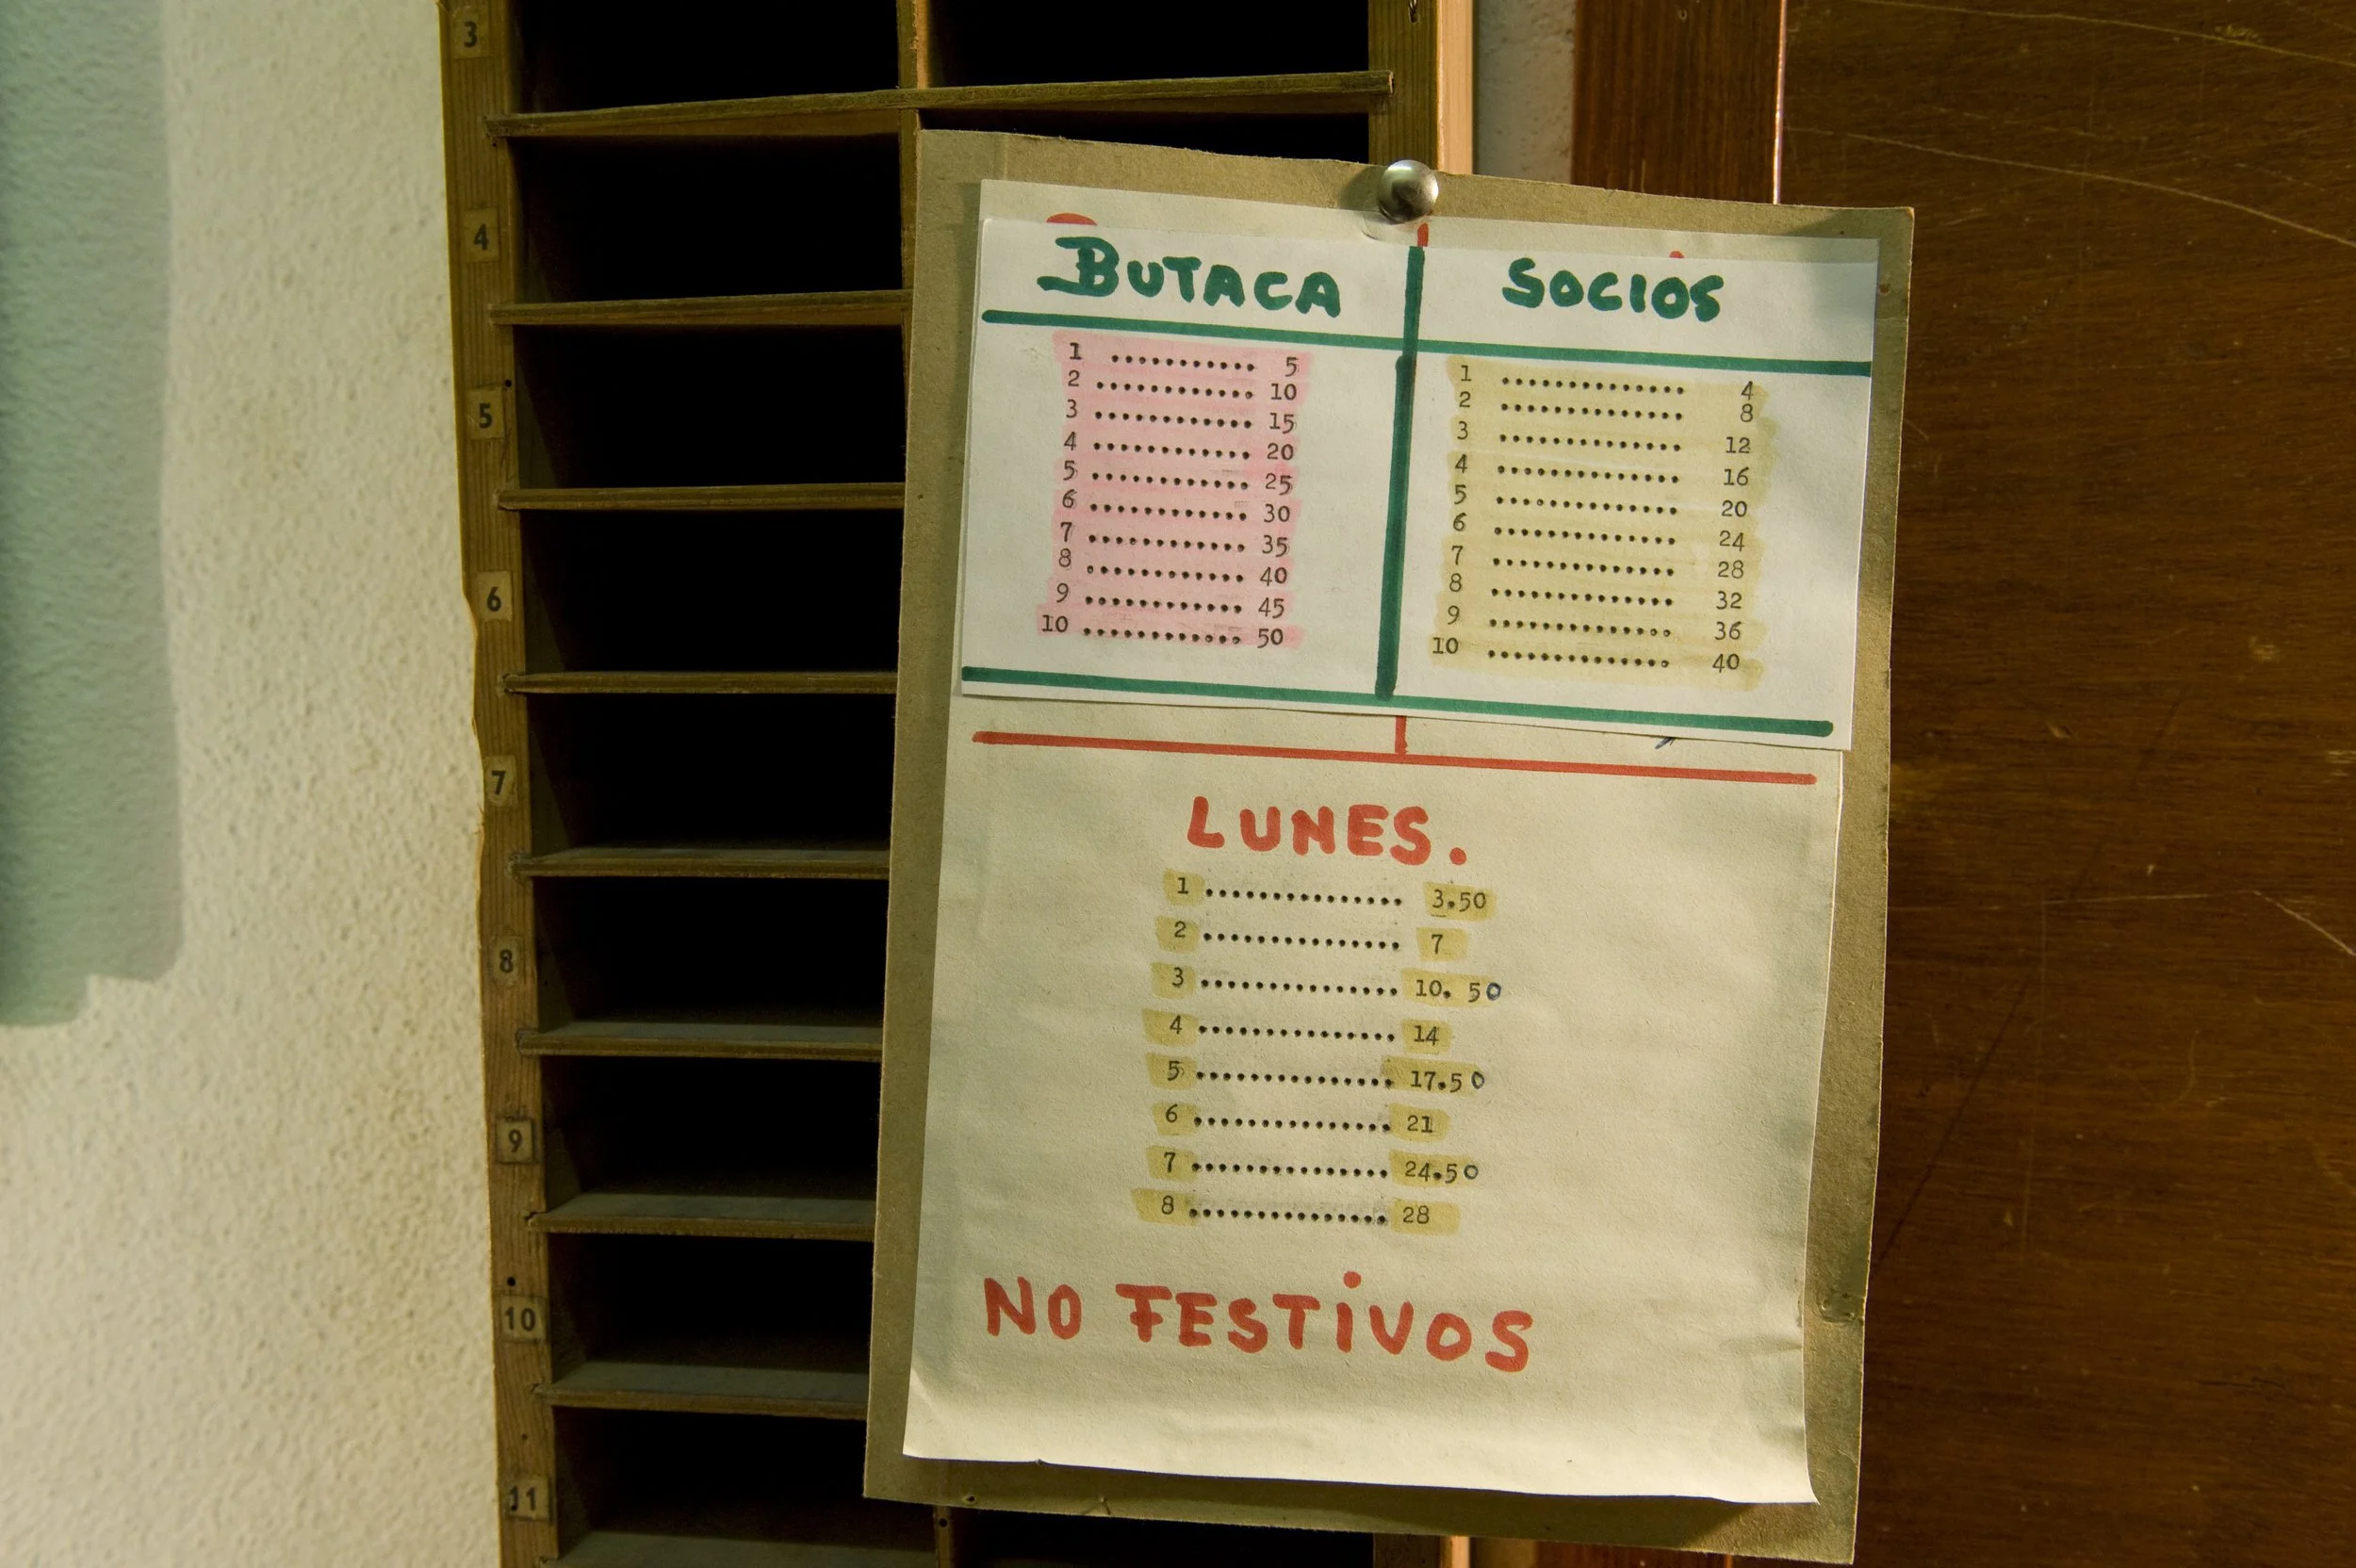 3
4
5
6
7
8
9
10
11
BUTACA
1 ............ 5
2 ............ 10
3 ............ 15
4 ............ 20
5 ............ 25
6 ............ 30
7 ............ 35
8 ............ 40
9 ............ 45
10 ............ 50
SOCIOS
1 .............. 4
2 .............. 8
3 .............. 12
4 .............. 16
5 .............. 20
6 .............. 24
7 .............. 28
8 .............. 32
9 .............. 36
10 .............. 40
LUNES.
1 ............... 3.50
2 ............... 7
3 ............... 10. 50
4 ............... 14
5 ............... 17.50
6 ............... 21
7 ............... 24.50
8 ............... 28
NO FESTiVOS